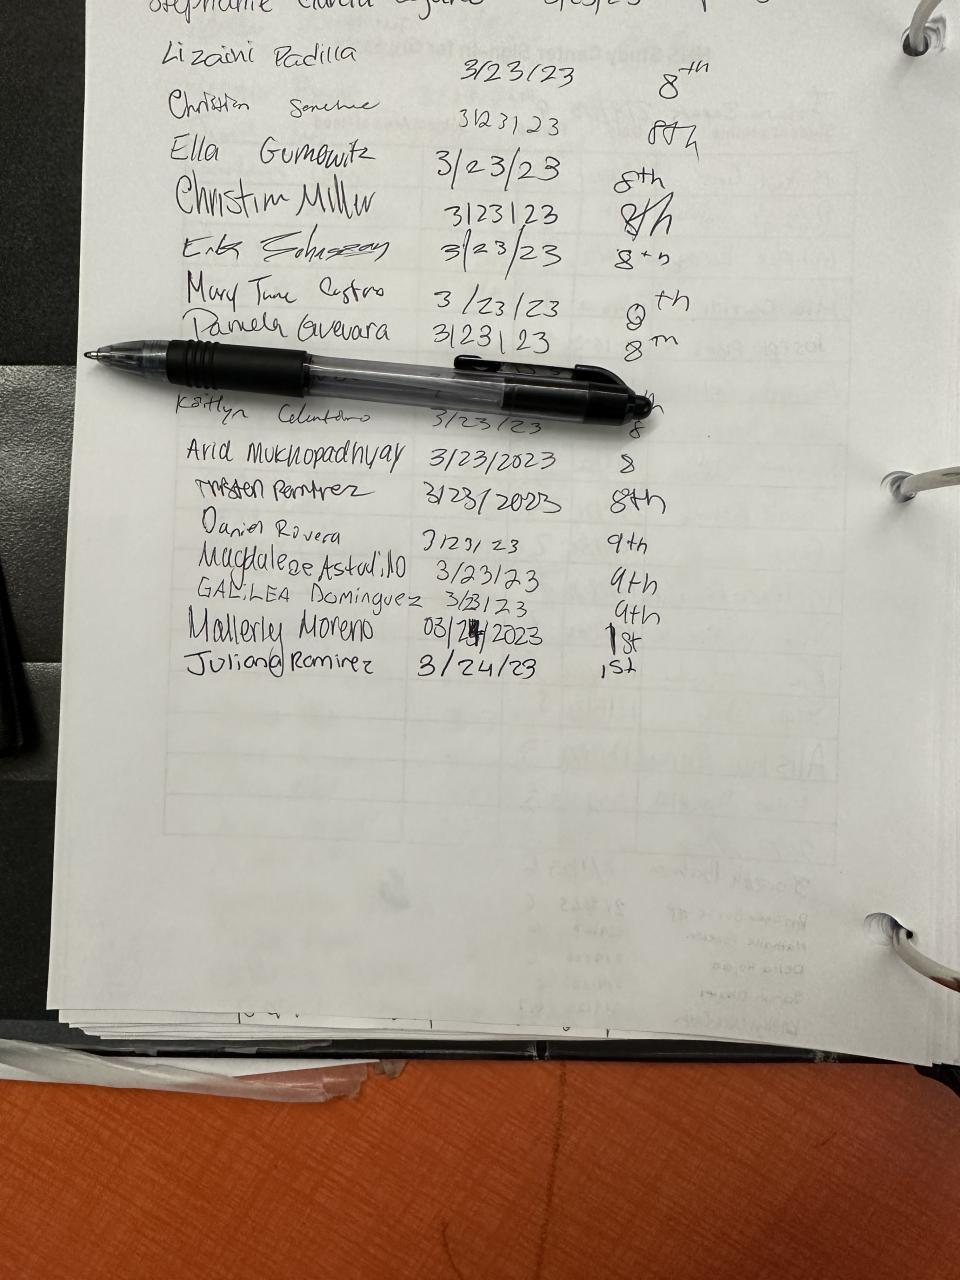 Lizaini Padilla 3/23/23 8th
Christian 3/23/23 8th
Ella Gurnowitz 3/23/23 8th
Christina Miller 3/23/23 8th
3/23/23 8th
Mary Jane Castro 3/23/23 8th
Pamela Guevara 3/23/23 8th
Kaitlyn Celentano 3/23/23 8
Aria Mukhopadhyay 3/23/2023 8
Tristen Ramirez 3/23/2023 8th
Daniel Rovera 3/23/23 9th
Magdalene Astudillo 3/23/23 9th
GALiLEA Dominguez 3/23/23 9th
Mallerly Moreno 03/24/2023 1st
Juliana Ramirez 3/24/23 1st